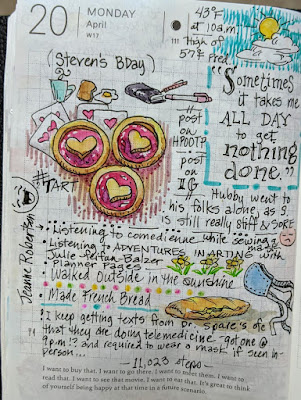 20 MONDAY
April
W17
43°F
at 10 a.m.
High of
57°F Pred.
(Steven's BDay)
"Sometimes
it takes me
ALL DAY
to get
nothing
done."
#
post
on
HPDDTP
post
on
IG
#TART
Hubby went to
his folks alone as I
is still really Stiff & SORE
Jeanne Robertson
Listening to comedienne while sewing
Listening to ADVENTURES IN ARTING with
Julie Fei-Fan Balzer
Planner Pages
Walked Outside in the sunshine
Made French Bread
I keep getting texts from Dr. Spare's ofc
that they are doing telemedicine - got one @
9 p.m!? and required to wear a mask if seen in
person...
11,023 steps
I want to buy that. I want to go there. I want to meet them. I want to
read that. I want to see that movie. I want to eat that. It's great to think
of yourself being happy at that time in a future scenario.